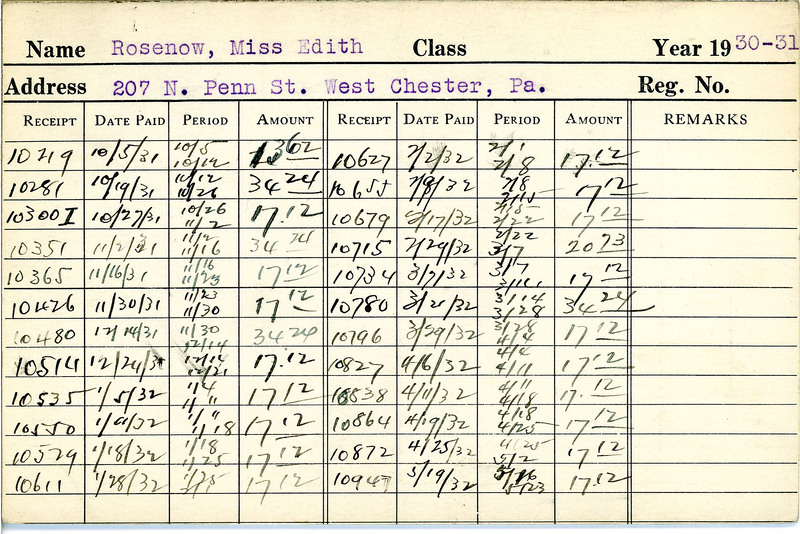 Name Rosenow, Miss Edith Class Year 1930-31
Address 207 N. Penn St. West Chester, Pa. Reg. No.
RECEIPT DATE PAID PERIOD AMOUNT RECEIPT DATE PAID PERIOD AMOUNT REMARKS
10219 10/5/31 10/5 10/12 1362 10627 2/2/32 2/1 2/8 17.12
10281 10/19/31 10/12 10/26 34 24 10655 2/8/32 2/8 2/15 17 12
10300I 10/27/31 10/26 11/2 17.12 10679 2/17/32 2/15 2/22 17 12
10351 11/2/31 11/2 11/16 34 24 10715 2/29/32 2/22 3/7 20 73
10365 11/16/31 11/16 11/23 17 12 10734 3/7/32 3/7 17 12
10426 11/30/31 11/23 11/30 17 12 10780 3/21/32 3/14 3/28 34 24
10480 12/14/31 11/30 12/14 34 24 10796 3/29/32 3/28 4/4 17 12
10514 12/24/31 12/14 12/21 17.12 10827 4/6/32 4/4 4/11 17 12
10535 1/5/32 1/4 1/11 17 12 10838 4/11/32 4/11 4/18 17.12
10550 1/11 1/18 17 12 10864 4/19/32 4/18 4/25 17 12
10579 1/18/32 1/18 1/25 17 12 10872 4/25/32 4/25 5/2 17 12
10611 1/28/32 1/25 17 12 10947 5/19/32 5/16 5/23 17.12